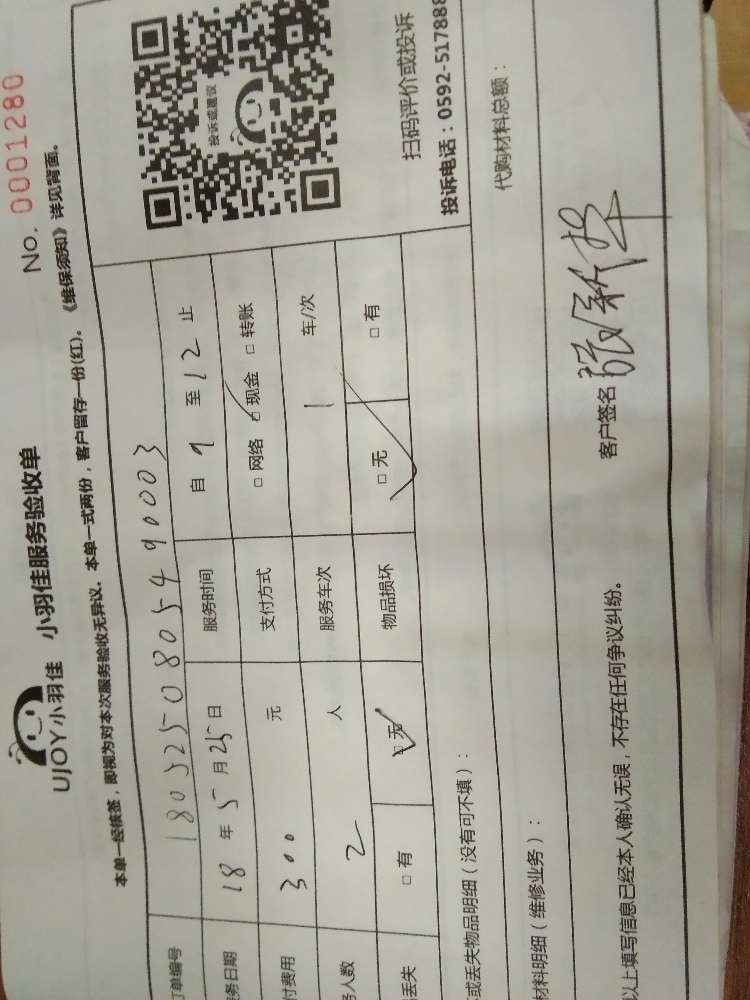 UJOY小羽佳 小羽佳服务验收单 No. 0001280
本单一经核签，即视为对本次服务验收无异议。本单一式两份，客户留存一份(红)。《维保须知》详见背面。
订单编号 180525080549 0003
务日期 18 年 5 月 25 日 服务时间 自 9 至 12 止
付费用 300 元 支付方式 □ 网络 □ 现金 □ 转账
务人数 2 人 服务车次 1 车/次
丢失 □ 有 □ 无 物品损坏 □ 无 □ 有
投诉或建议
扫码评价或投诉
投诉电话：0592-517888
或丢失物品明细（没有可不填）：
代购材料总额：
材料明细（维修业务）：
以上填写信息已经本人确认无误，不存在任何争议纠纷。
客户签名